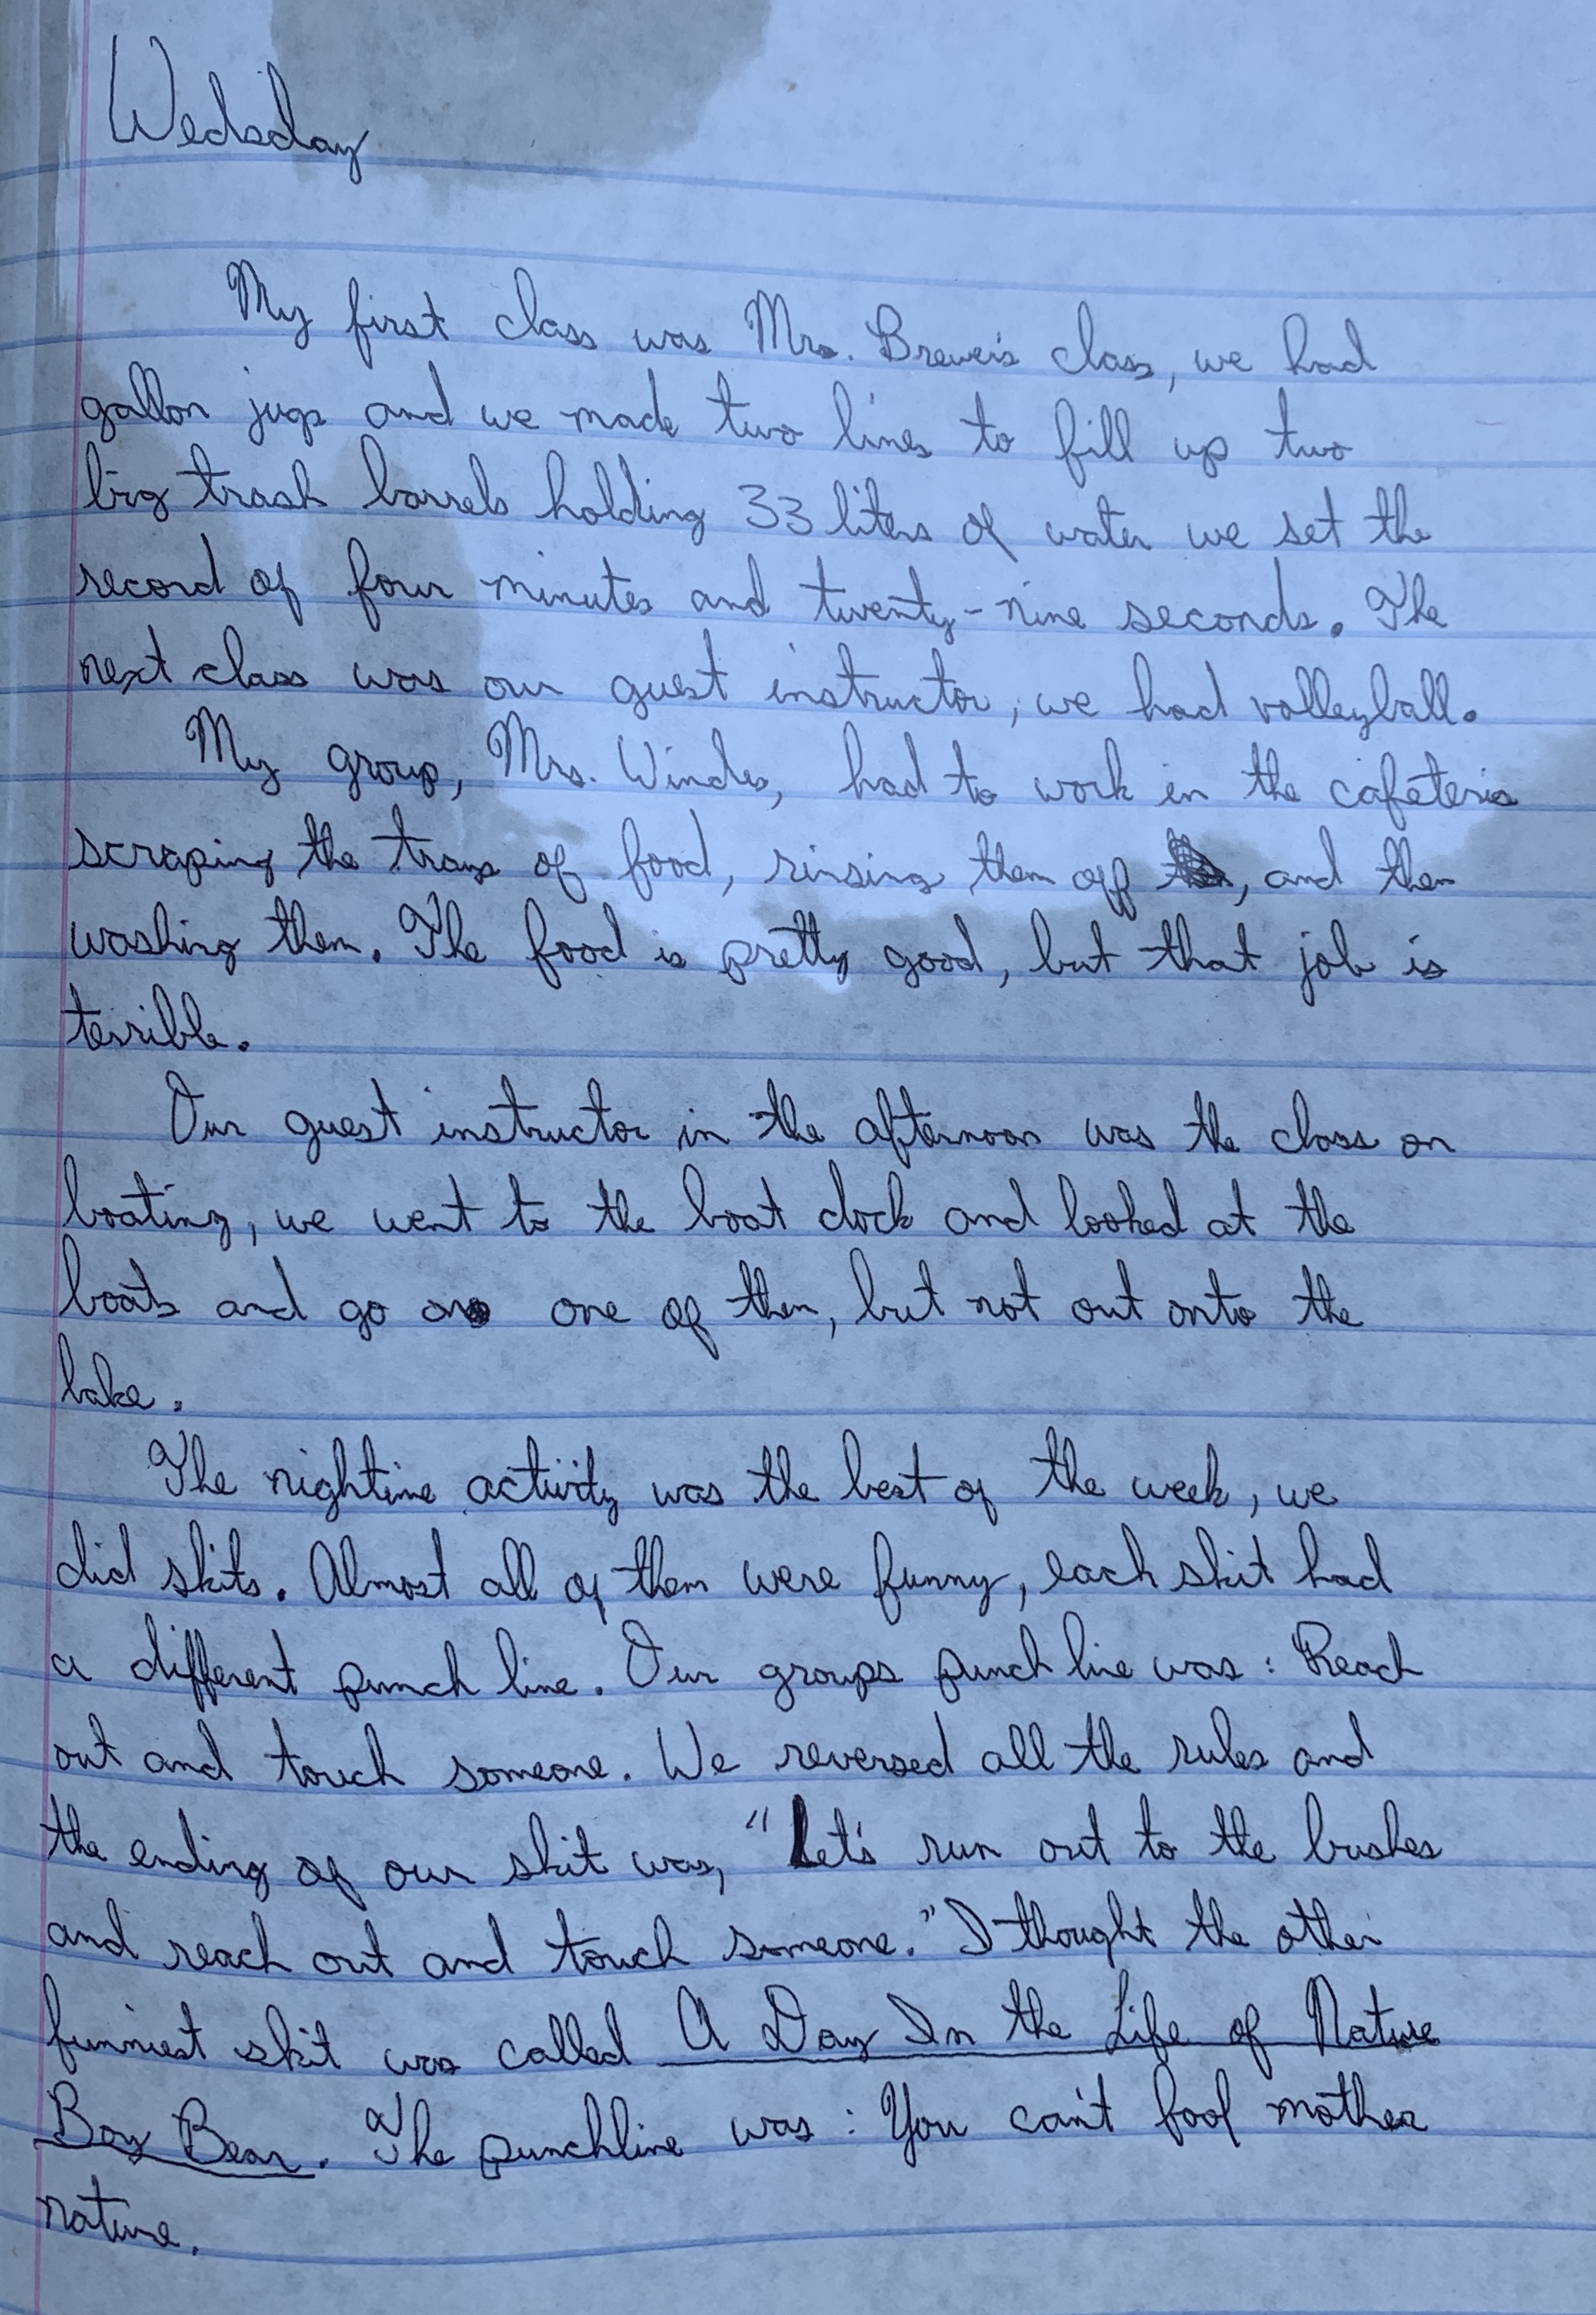 Wedsday
My first class was Mrs. Brewer's class, we had
gallon jugs and we made two lines to fill up two
big trash barrels holding 33 liters of water we set the
record of four minutes and twenty-nine seconds. The
next class was our guest instructor, we had volleyball.
My group, Mrs. Windes, had to work in the cafeteria
scraping the trays of food, rinsing them off, and then
washing them. The food is pretty good, but that job is
terrible.
Our guest instructor in the afternoon was the class on
boating, we went to the boat dock and looked at the
boats and go on one of them, but not out onto the
lake.
The nightime activity was the best of the week, we
did skits. Almost all of them were funny, each skit had
a different punch line. Our groups punch line was: Reach
out and touch someone. We reversed all the rules and
the ending of our skit was, "Let's run out to the bushes
and reach out and touch someone." I thought the other
funniest skit was called A Day In the Life of Nature
Boy Bear. The punchline was: You can't fool mother
nature.